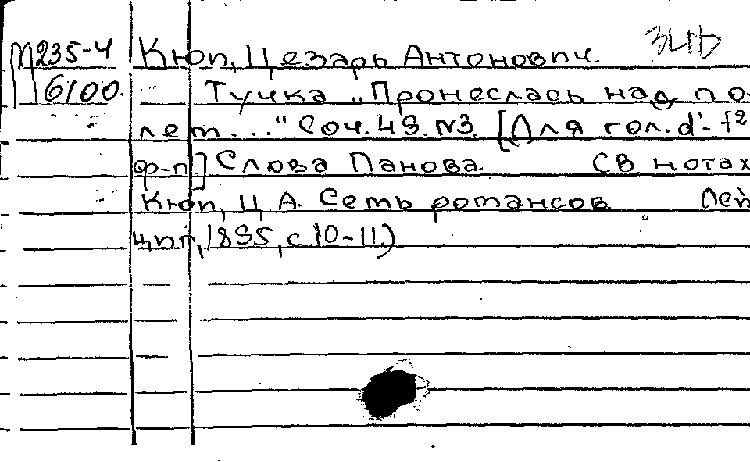 М235-4 Кюи, Цезарь Антонович.
6100. Тучка „Пронеслась над по-
лем..." Соч.49. №3. [Для гол. d'-f²
ф-п] Слова Панова. (В нотах
Кюи, Ц. А. Семь романсов. Лейп
циг, 1895, с. 10-11.)